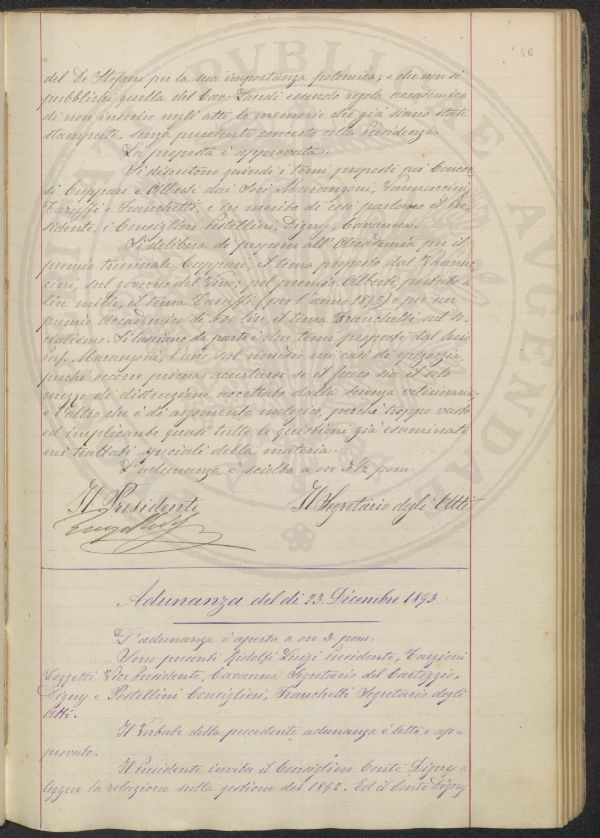 46
del De Stefani per la sua importanza polemica, e che non si
pubblichi quella del Cav. Landi essendo regola accademica
di non inserire negli atti le memorie che già siano state
stampate, senza precedente concerto colla Presidenza.
La proposta è approvata.
Si discutono quindi i temi proposti pei Concor
si Cuppari e Alberti dai Soci Marangoni, Vannuccini,
Taruffi e Franchetti, e in merito di essi parlano il Pre
sidente, i Consiglieri Pestellini, Digny, Cavanna.
Si delibera di proporre all'Accademia per il
premio triennale Cuppari, il tema proposto dal Vannuc
cini, sul governo del vino; pel premio Alberti portato a
lire mille, il tema Taruffi (per l'anno 1895) e per un
premio Accademico di lire il tema Franchetti sul so
cialismo. Si lasciano da parte i due temi proposti dal Socio
Prof. Marangoni, l'uno sul rimedio nei casi di epizoozia,
perchè occorre prima accertarsi se il fuoco sia il solo
mezzo di distruzione accettato dalla scienza veterinaria,
e l'altro che è di argomento enologico, perchè troppo vasto
ed implicante quasi tutte le questioni già esaminate
nei trattati speciali della materia.
L'adunanza è sciolta a ore 3½ pom.
Il Presidente Il Segretario degli Atti
Adunanza del dì 23 Dicembre 1893
L'adunanza è aperta a ore 3 pom:
Sono presenti Ridolfi Luigi Presidente, Targioni
Tozzetti Vice Presidente, Cavanna Segretario del Carteggio,
Digny e Pestellini Consiglieri, Franchetti Segretario degli
Atti.
Il Verbale della precedente adunanza è letto e ap=
provato.
Il Presidente invita il Consigliere Conte Digny a
leggere la relazione sulla gestione del 1892. Ed il Conte Digny